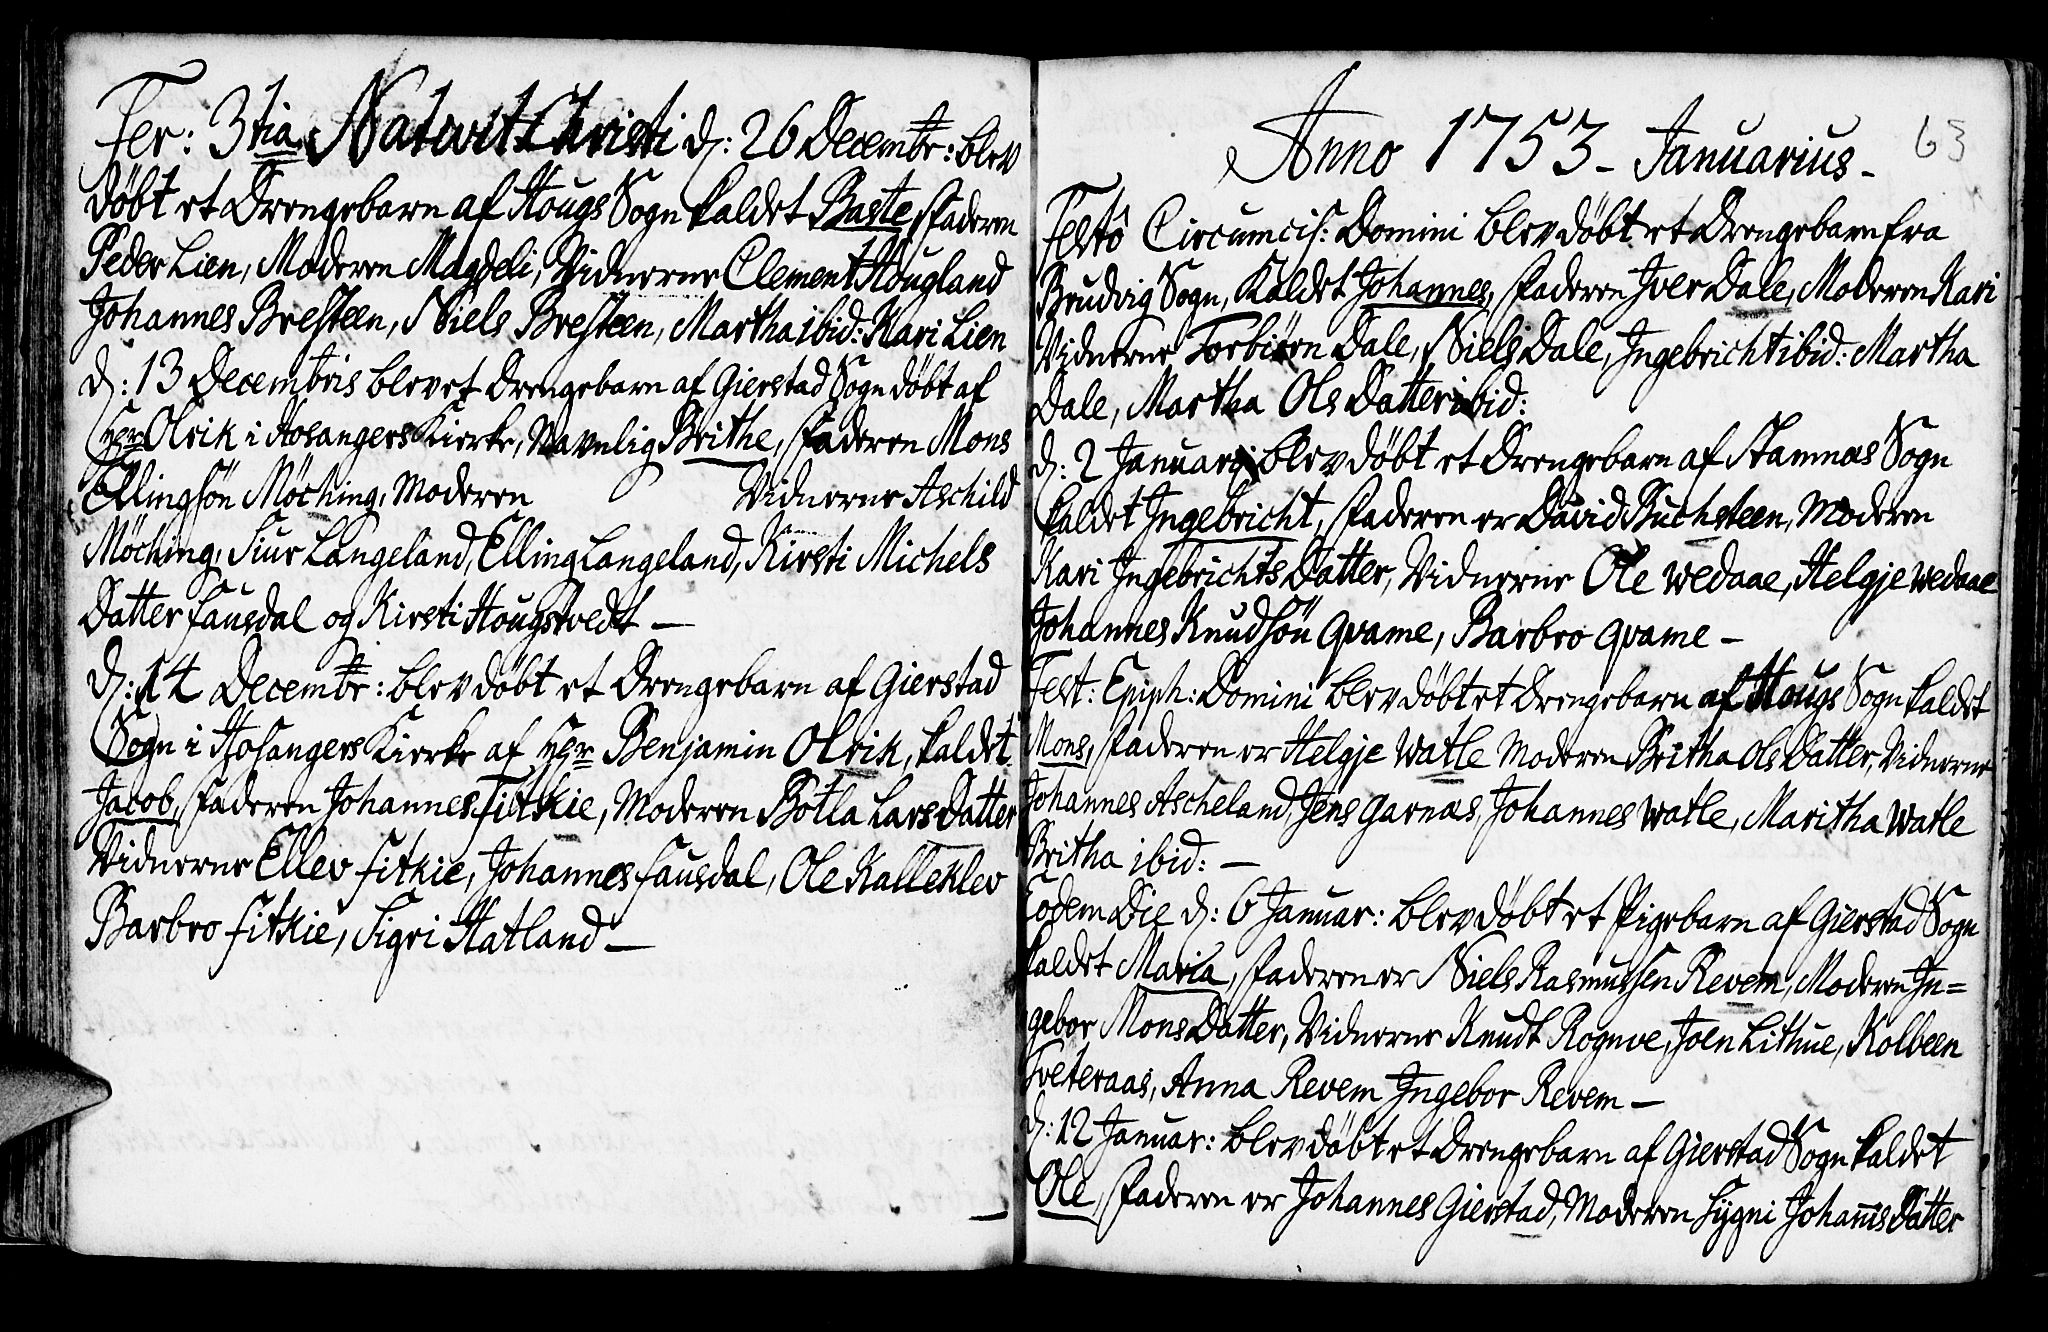 Fer: 3tia Nativit Christi d: 26 Decembr: blev
døbt et Drengebarn af Hougs Sogn kaldet Baste, Faderen
Peder Lien, Moderen Magdeli, Vidnerne Clement Hougland
Johannes Bresteen, Niels Bresteen, Martha ibid: Kari Lien
d: 13 Decembris blev et Drengebarn af Gierstad Sogn døbt af
Hr Olrik i Hosangers Kierke, Navnlig Brithe, Faderen Mons
Ellingsøn Møching, Moderen Vidnerne Aschild
Møching, Siur Langeland, Elling Langeland, Kirsti Michels
Datter Fausdal og Kirsti Hougstvedt —
d: 14 Decembr: blev døbt et Drengebarn af Gierstad
Sogn i Hosangers Kierke af Hr Benjamin Olrik, kaldet
Jacob, Faderen Johannes Fitkie, Moderen Botla Lars Datter
Vidnerne Ellev Fitkie, Johannes Fausdal, Ole Kalleklev
Barbro Fitkie, Sigri Hatland —
63
Anno 1753 - Januarius -
Festô Circumcis: Domini blev døbt et Drengebarn fra
Brudvig Sogn, kaldet Johannes, Faderen Iver Dale, Moderen Kari
Vidnerne Torbiørn Dale, Niels Dale, Ingebricht ibid: Martha
Dale, Martha Ols Datter ibid:
d: 2 Januarj blev døbt et Drengebarn af Stamnæs Sogn
kaldet Ingebricht, Faderen er David Buchsteen, Moderen
Kari Ingebrichts Datter, Vidnerne Ole Wedaae, Helgje Wedaae
Johannes Knudsøn Qvame, Barbro Qvame —
Fest: Epiph: Domini blev døbt et Drengebarn af Hougs Sogn kaldet
Mons, Faderen er Helgje Watle Moderen Britha Ols Datter, Vidnerne
Johannes Ascheland, Jens Garnæs, Johannes Watle, Maritha Watle
Britha ibid: —
Eodem Die d: 6 Januar: blev døbt et Pigebarn af Gierstad Sogn
kaldet Maria, Faderen er Niels Rasmussen Revem, Moderen In=
gebor Mons Datter, Vidnerne Knudt Rognve, Joen Lithue, Kolbeen
Tveteraas, Anna Revem Ingebor Revem —
d: 12 Januar: blev døbt et Drengebarn af Gierstad Sogn kaldet
Ole, Faderen er Johannes Gierstad, Moderen Sygni Johannis Datter